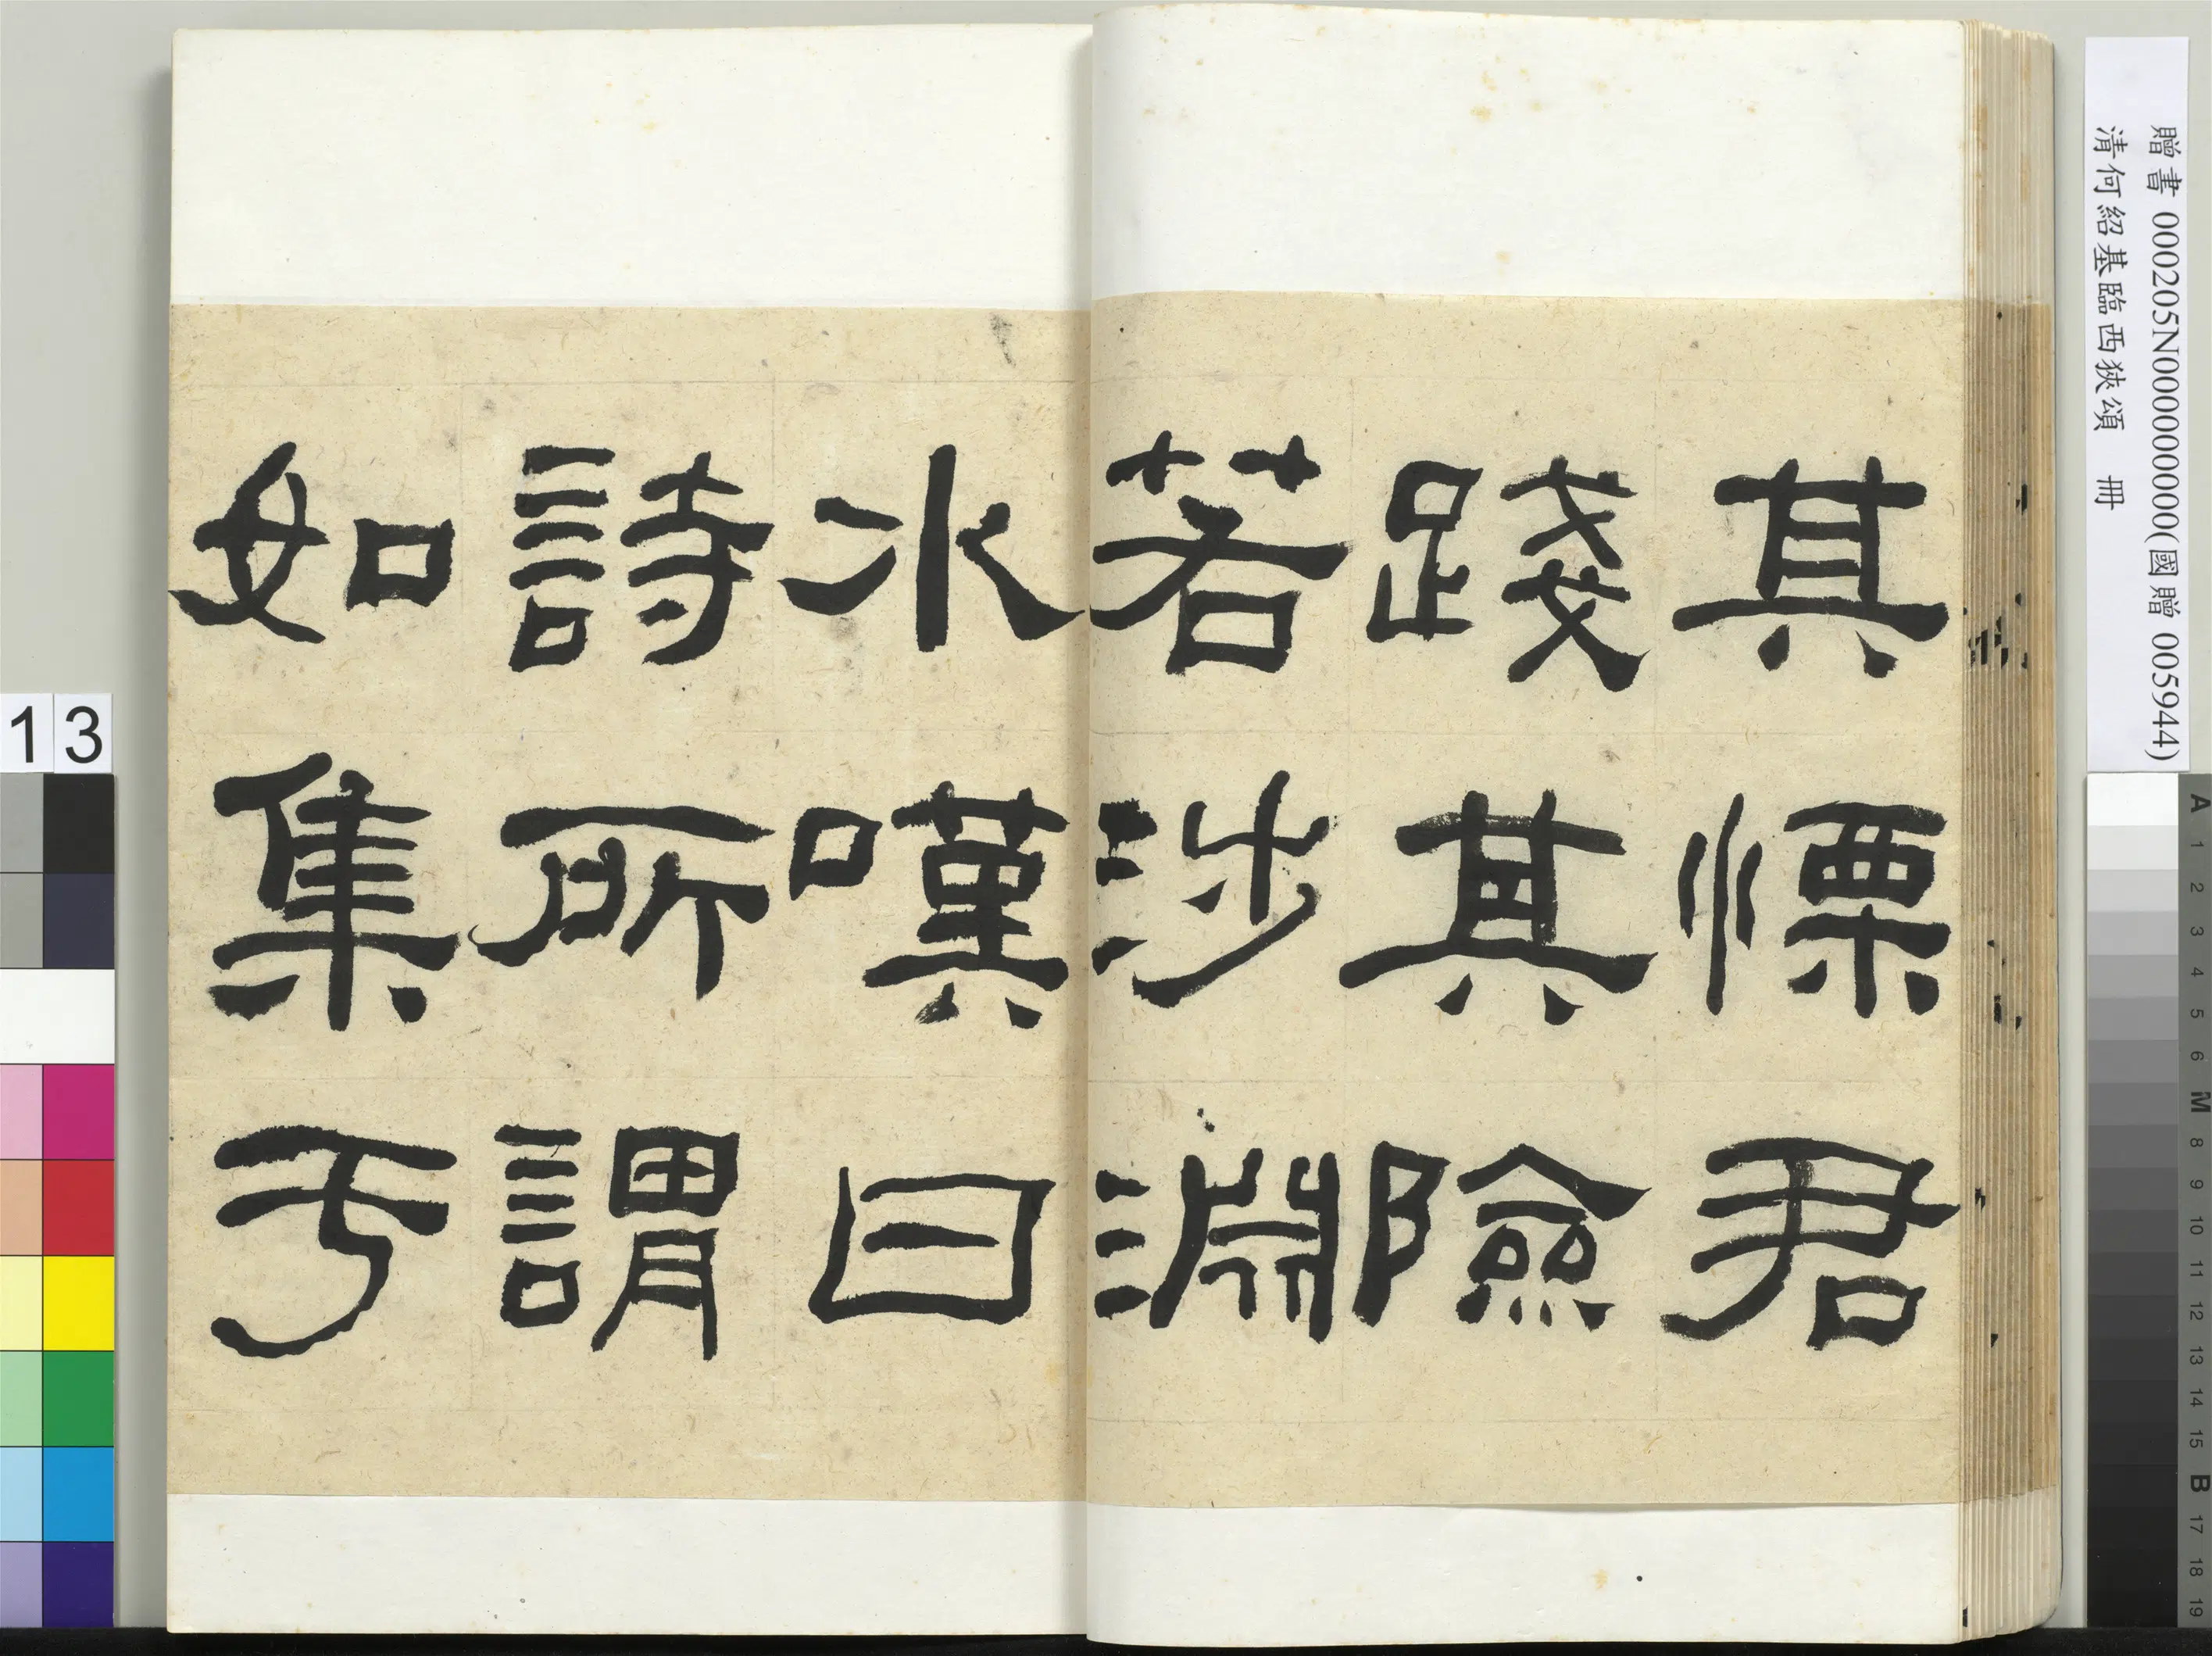 其慄君
踐其險
若涉淵
水嘆曰
詩所謂
如集于
贈書 000205N000000000(國贈 005944)
清何紹基臨西狹頌 冊
13
A 1 2 3 4 5 6 M 8 9 10 11 12 13 14 15 B 17 18 19